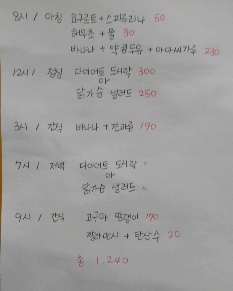 8시 / 아침 요구르트 + 스피루리나 50
해독초 + 물 30
바나나 + 약콩두유 + 아마씨가루 230
12시 / 점심 다이어트 도시락 300
or
닭가슴 샐러드 250
3시 / 간식 바나나 + 견과류 170
7시 / 저녁 다이어트 도시락 "
or
닭가슴 샐러드 "
9시 / 간식 고구마 말랭이 170
깔라만시 + 탄산수 20
총 1.240